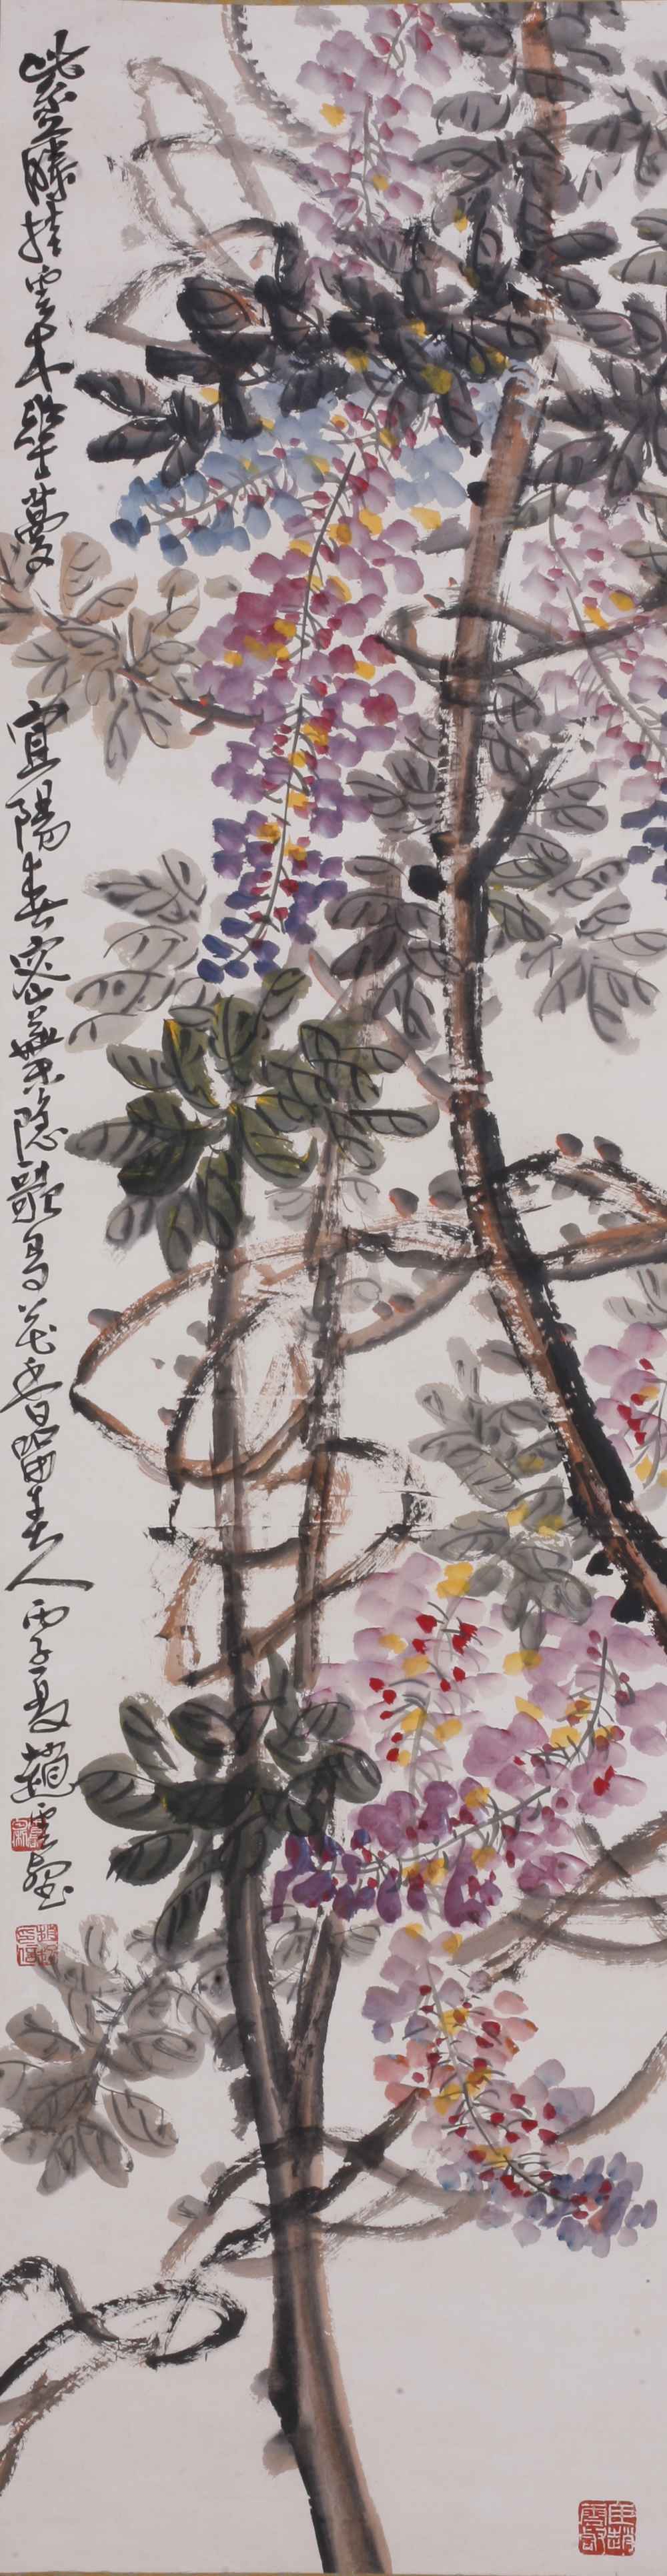 紫藤挂雲木華蔓宜陽春密葉隱歌鳥花香留美人丙子夏趙雲壑